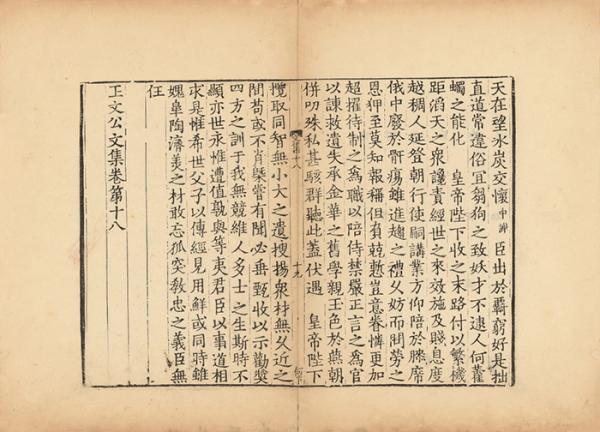 天在望冰炭交懷中謝臣出於覊窮好是拙
直道常違俗宜芻狗之致妖才不逮人何藿
蠋之能化　皇帝陛下收之末路付以繁機
距滔天之衆讒責經世之來效施及賤息度
越稠人延登朝行使嗣講業方仰陪於㡡席
俄中廢於骭瘍雖進趨之禮久妨而問勞之
恩狎至莫知報稱但負兢慙豈意眷憐更加
超擢待制之爲職以陪侍禁嚴正言之爲官
以諫救遺失承金華之舊學親玉色於燕朝
併叨殊私甚駭群聽此蓋伏遇　皇帝陛下
文集十八
十九
攬取同智無小大之遺搜揚衆材無久近之
間苟或不肖槩嘗有聞必垂甄收以示勸奬
四方之訓于我無競維人多士之生斯時不
顯亦世永惟遭值孰與等夷君臣以事道相
求且惟希世父子以傳經見用鮮或同時雖
媿皐陶濟美之材敢忘狐突敎忠之義臣無
任
王文公文集卷第十八